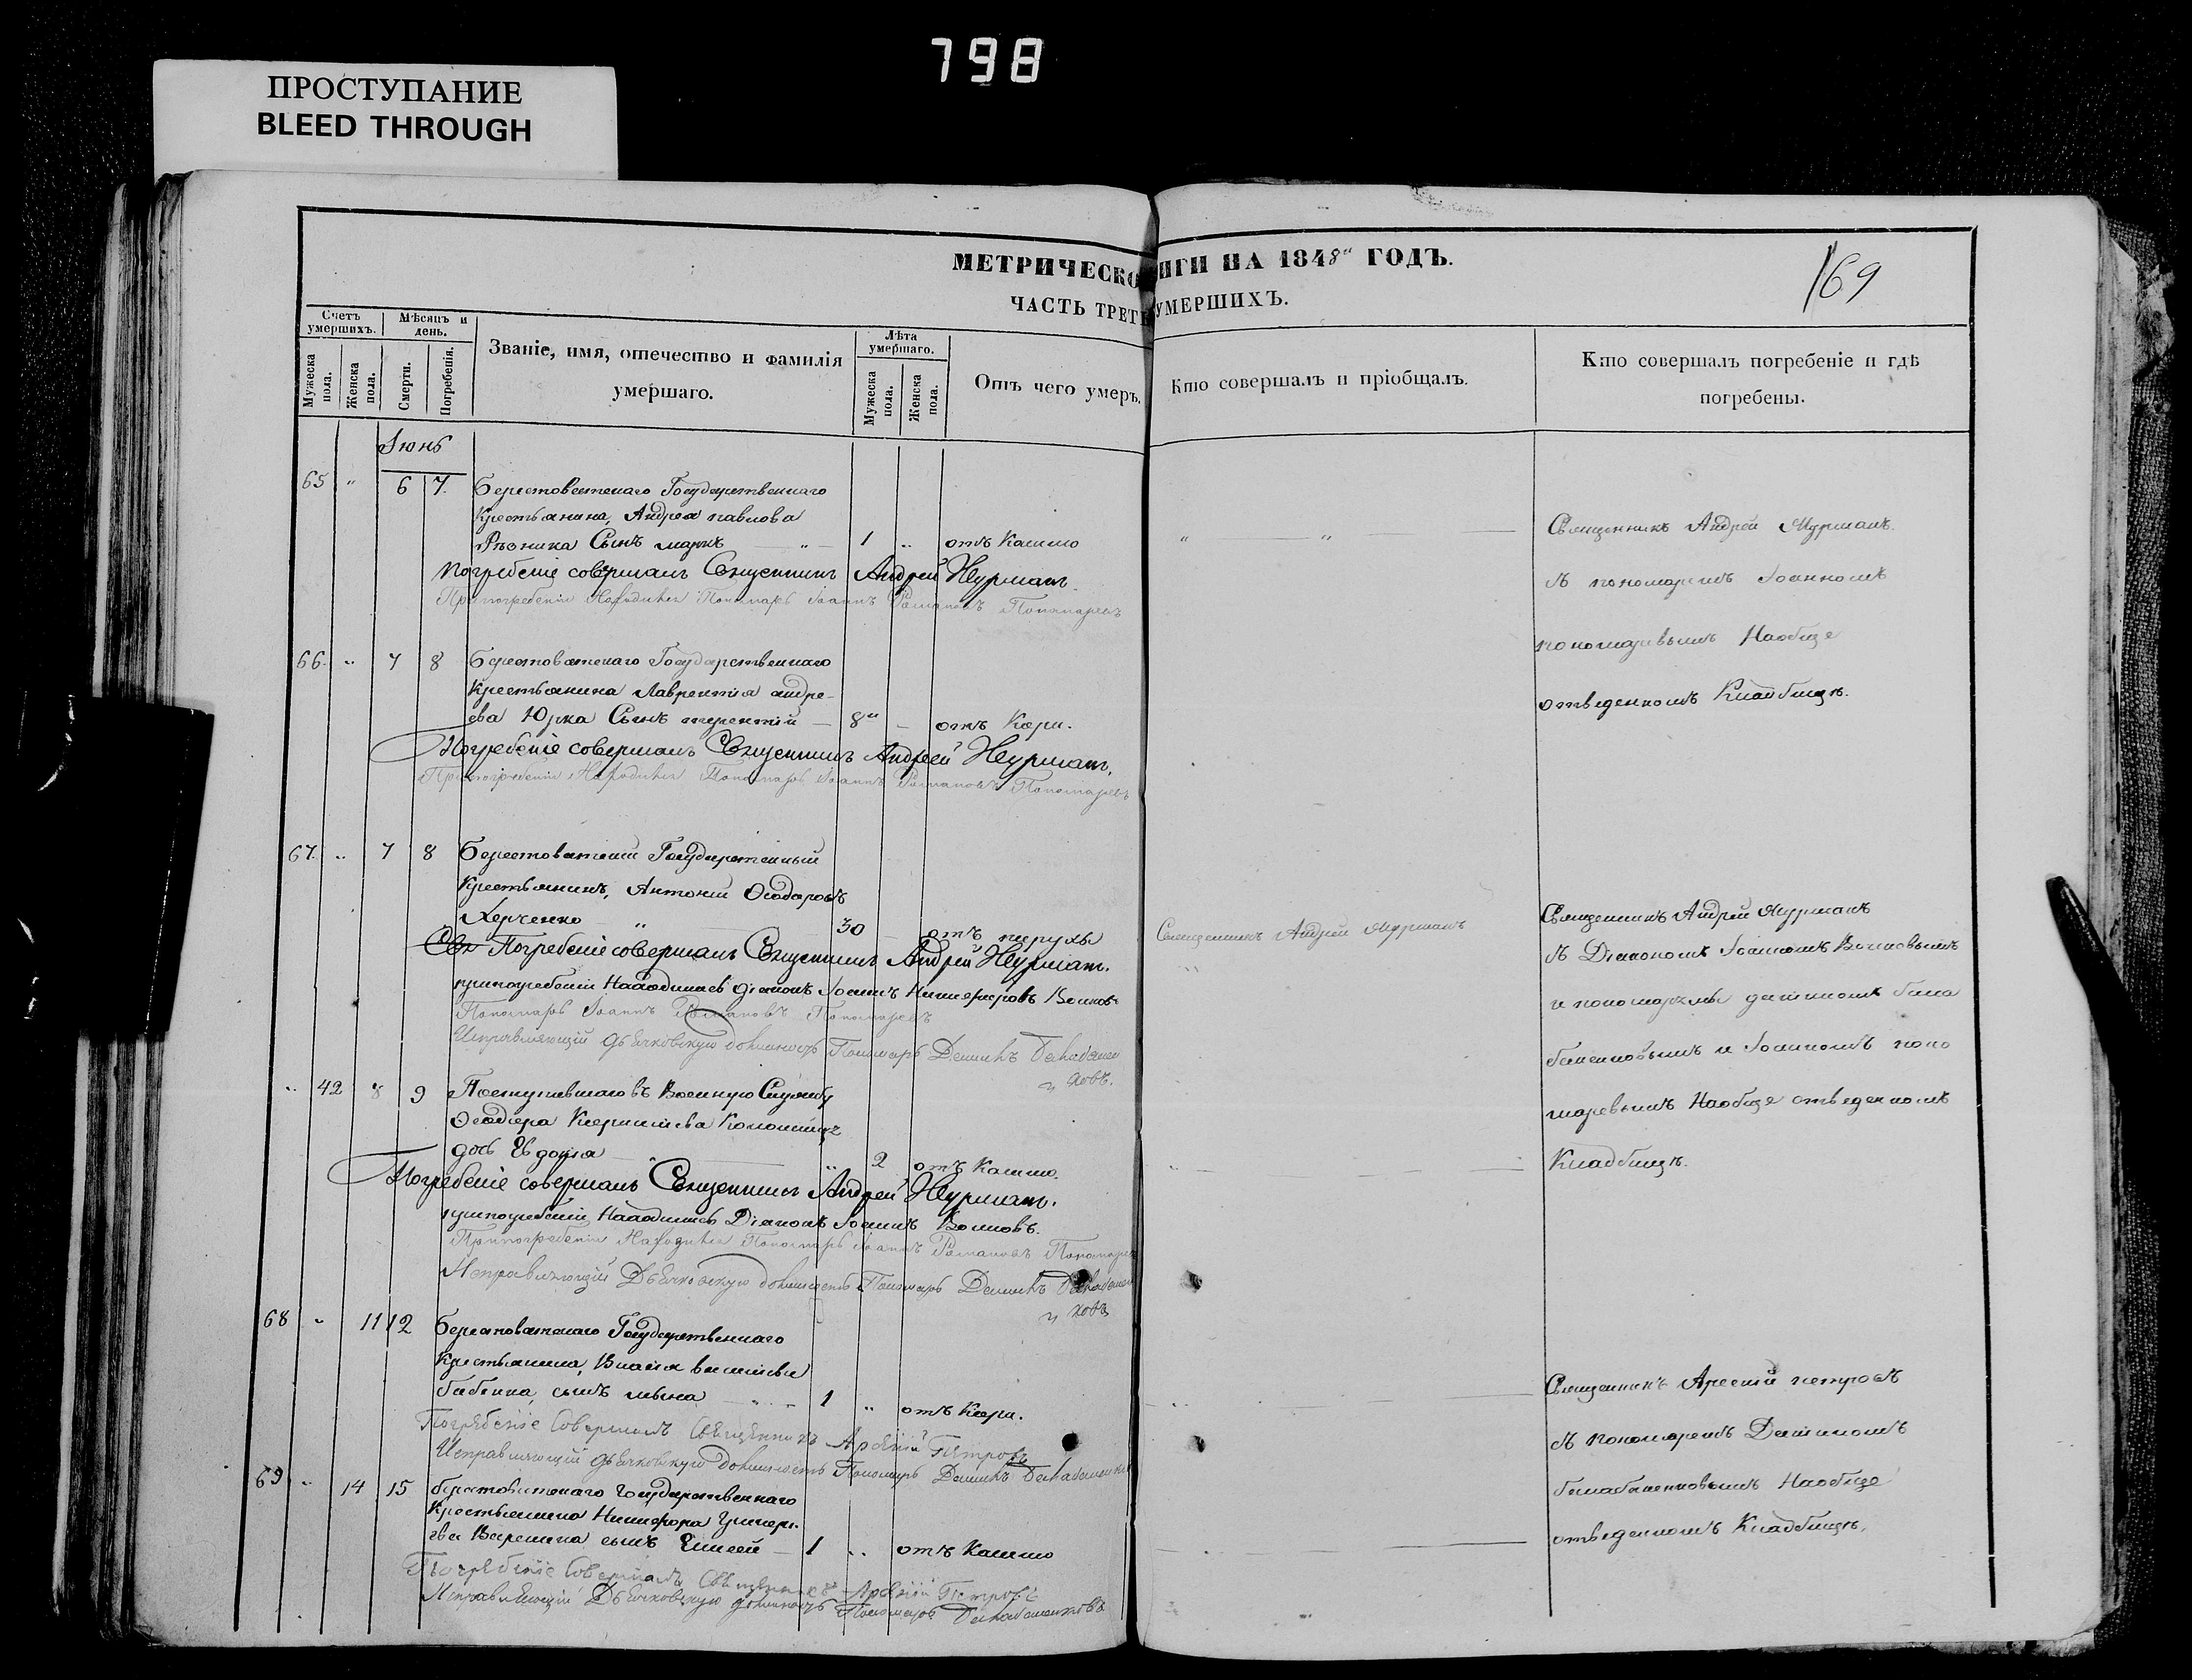 798
ПРОСТУПАНИЕ
BLEED THROUGH
МЕТРИЧЕСКО ИГИ НА 1848 ГОДЪ.
169
ЧАСТЬ ТРЕТ УМЕРШИХЪ.
Счетъ умершихъ.
Мѣсяцъ и день.
Званіе, имя, отечество и фамилія умершаго.
Лѣта умершаго.
Отъ чего умеръ.
Кто совершалъ и пріобщалъ.
Кто совершалъ погребеніе и гдѣ погребены.
Мужеска пола.
Женска пола.
Смерти.
Погребенія.
Мужеска пола.
Женска пола.
Іюнь
65 " 6 7 Берестоватскаго Государственнаго
Крестьянина, Андрея павлова
Рѣзника Сынъ марко " 1 " отъ Кашлю
Погребеніе совершалъ Священникъ Андрей
При погребеніи Находился Пономарь Іоаннъ Романовъ Пономаревъ
Священникъ Андрей
съ пономаремъ Іоанномъ
пономаревымъ Наобще
отведенномъ Кладбищѣ.
66 " 7 8 Берестоватскаго Государственнаго
Крестьянина Лаврентія андре-
ева Юрка Сынъ терентій 8 отъ Кори.
Погребеніе совершалъ Священникъ Андрей
При погребеніи Находился Пономарь Іоаннъ Романовъ Пономаревъ
67 " 7 8 Берестоватскій Государственный
Крестьянинъ, Антоній Ѳеодоровъ
30 отъ
Погребеніе совершалъ Священникъ Андрей
при погребеніи Находился діаконъ Іоаннъ Никифоровъ
Пономарь Іоаннъ Романовъ Пономаревъ
Исправляющій дьячковскую должность Пономарь
Священникъ Андрей
Священникъ Андрей
съ Діакономъ Іоанномъ
и Іоанномъ поно
маревымъ Наобще отведенномъ
Кладбищѣ.
" 42 8 9 Поступившаго въ Военную Службу
Ѳеодора
дочь Евдокія " 2 отъ Кашлю.
Погребеніе совершалъ Священникъ Андрей
при погребеніи Находился Діаконъ Іоаннъ
При погребеніи Находился Пономарь Іоаннъ Романовъ
Исправляющій Дьячковскую должность Пономарь
68 " 11 12 Берестоватскаго Государственнаго
Крестьянина, Власія
сынъ 1 " отъ Кори.
Погребеніе Совершалъ Священникъ Арсеній Петровъ
Исправляющій дьячковскую должность Пономарь
Священникъ Арсеній петровъ
съ пономаремъ
Наобще
отведенномъ Кладбищѣ.
69 " 14 15 берестоватскаго государственнаго
Крестьянина Никифора
сынъ Елисей 1 " отъ Кашлю
Погребеніе Совершалъ Священникъ Арсеній Петровъ
Исправляющій Дьячковскую должность Пономарь